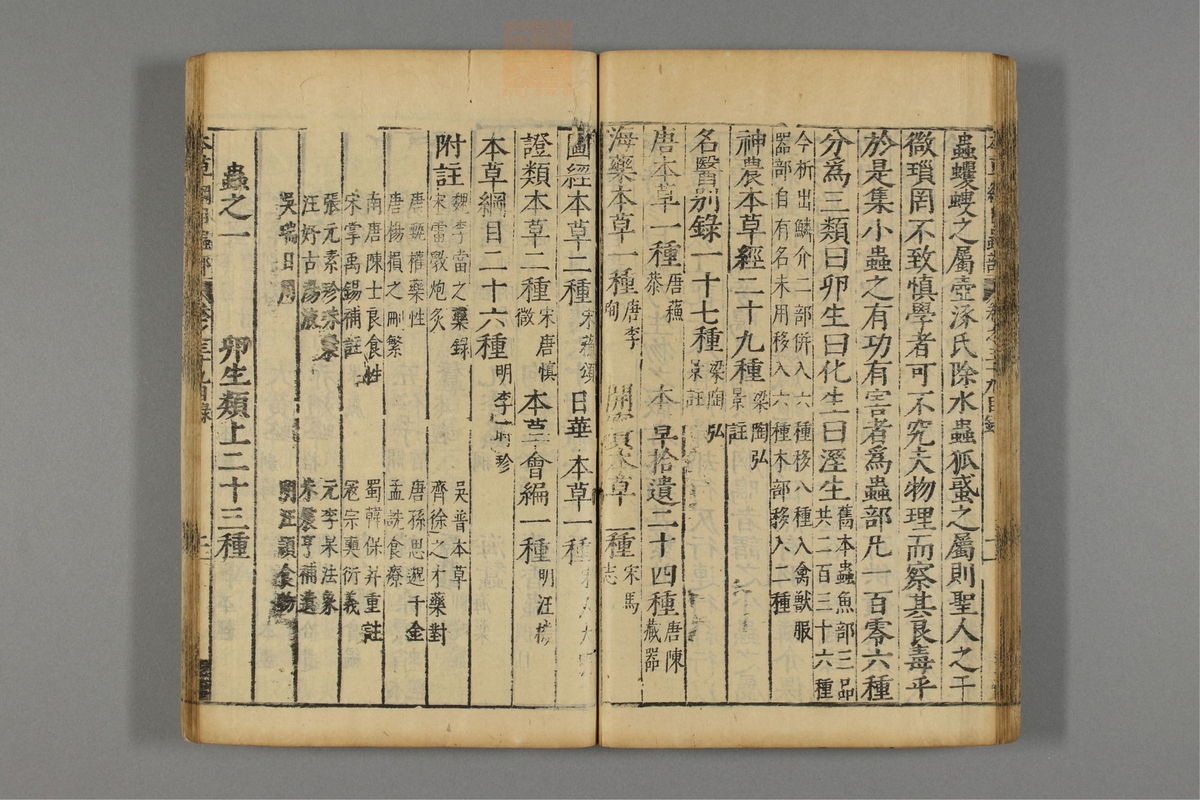 蟲螻蟈之屬壺涿氏除水蟲狐蜮之屬則聖人之于
微瑣罔不致慎學者可不究夫物理而察其良毒乎
於是集小蟲之有功有害者爲蟲部凡一百零六種
分爲三類曰卵生曰化生曰溼生舊本蟲魚部三品共二百三十六種
今析出鱗介二部併入六種移八種入禽獸服
器部自有名未用移入六種木部移入二種
神農本草經二十九種梁陶弘景註
名醫別錄一十七種梁陶弘景註
唐本草一種唐蘇恭 本草拾遺二十四種唐陳藏器
海藥本草一種唐李珣 開寶本草一種宋馬志
圖經本草二種宋蘇頌 日華本草一種
證類本草二種宋唐慎微 本草會編一種明汪機
本草綱目二十六種明李時珍
附註
魏李當之藥錄 吳普本草
宋雷斆炮炙 齊徐之才藥對
唐甄權藥性 唐孫思邈千金
唐楊損之刪繁 孟詵食療
南唐陳士良食性 蜀韓保昇重註
宋掌禹錫補註 寇宗奭衍義
張元素珍珠囊 元李杲法象
汪好古湯液 朱震亨補遺
吳瑞日用 明汪穎食物
蟲之一 卵生類上二十三種